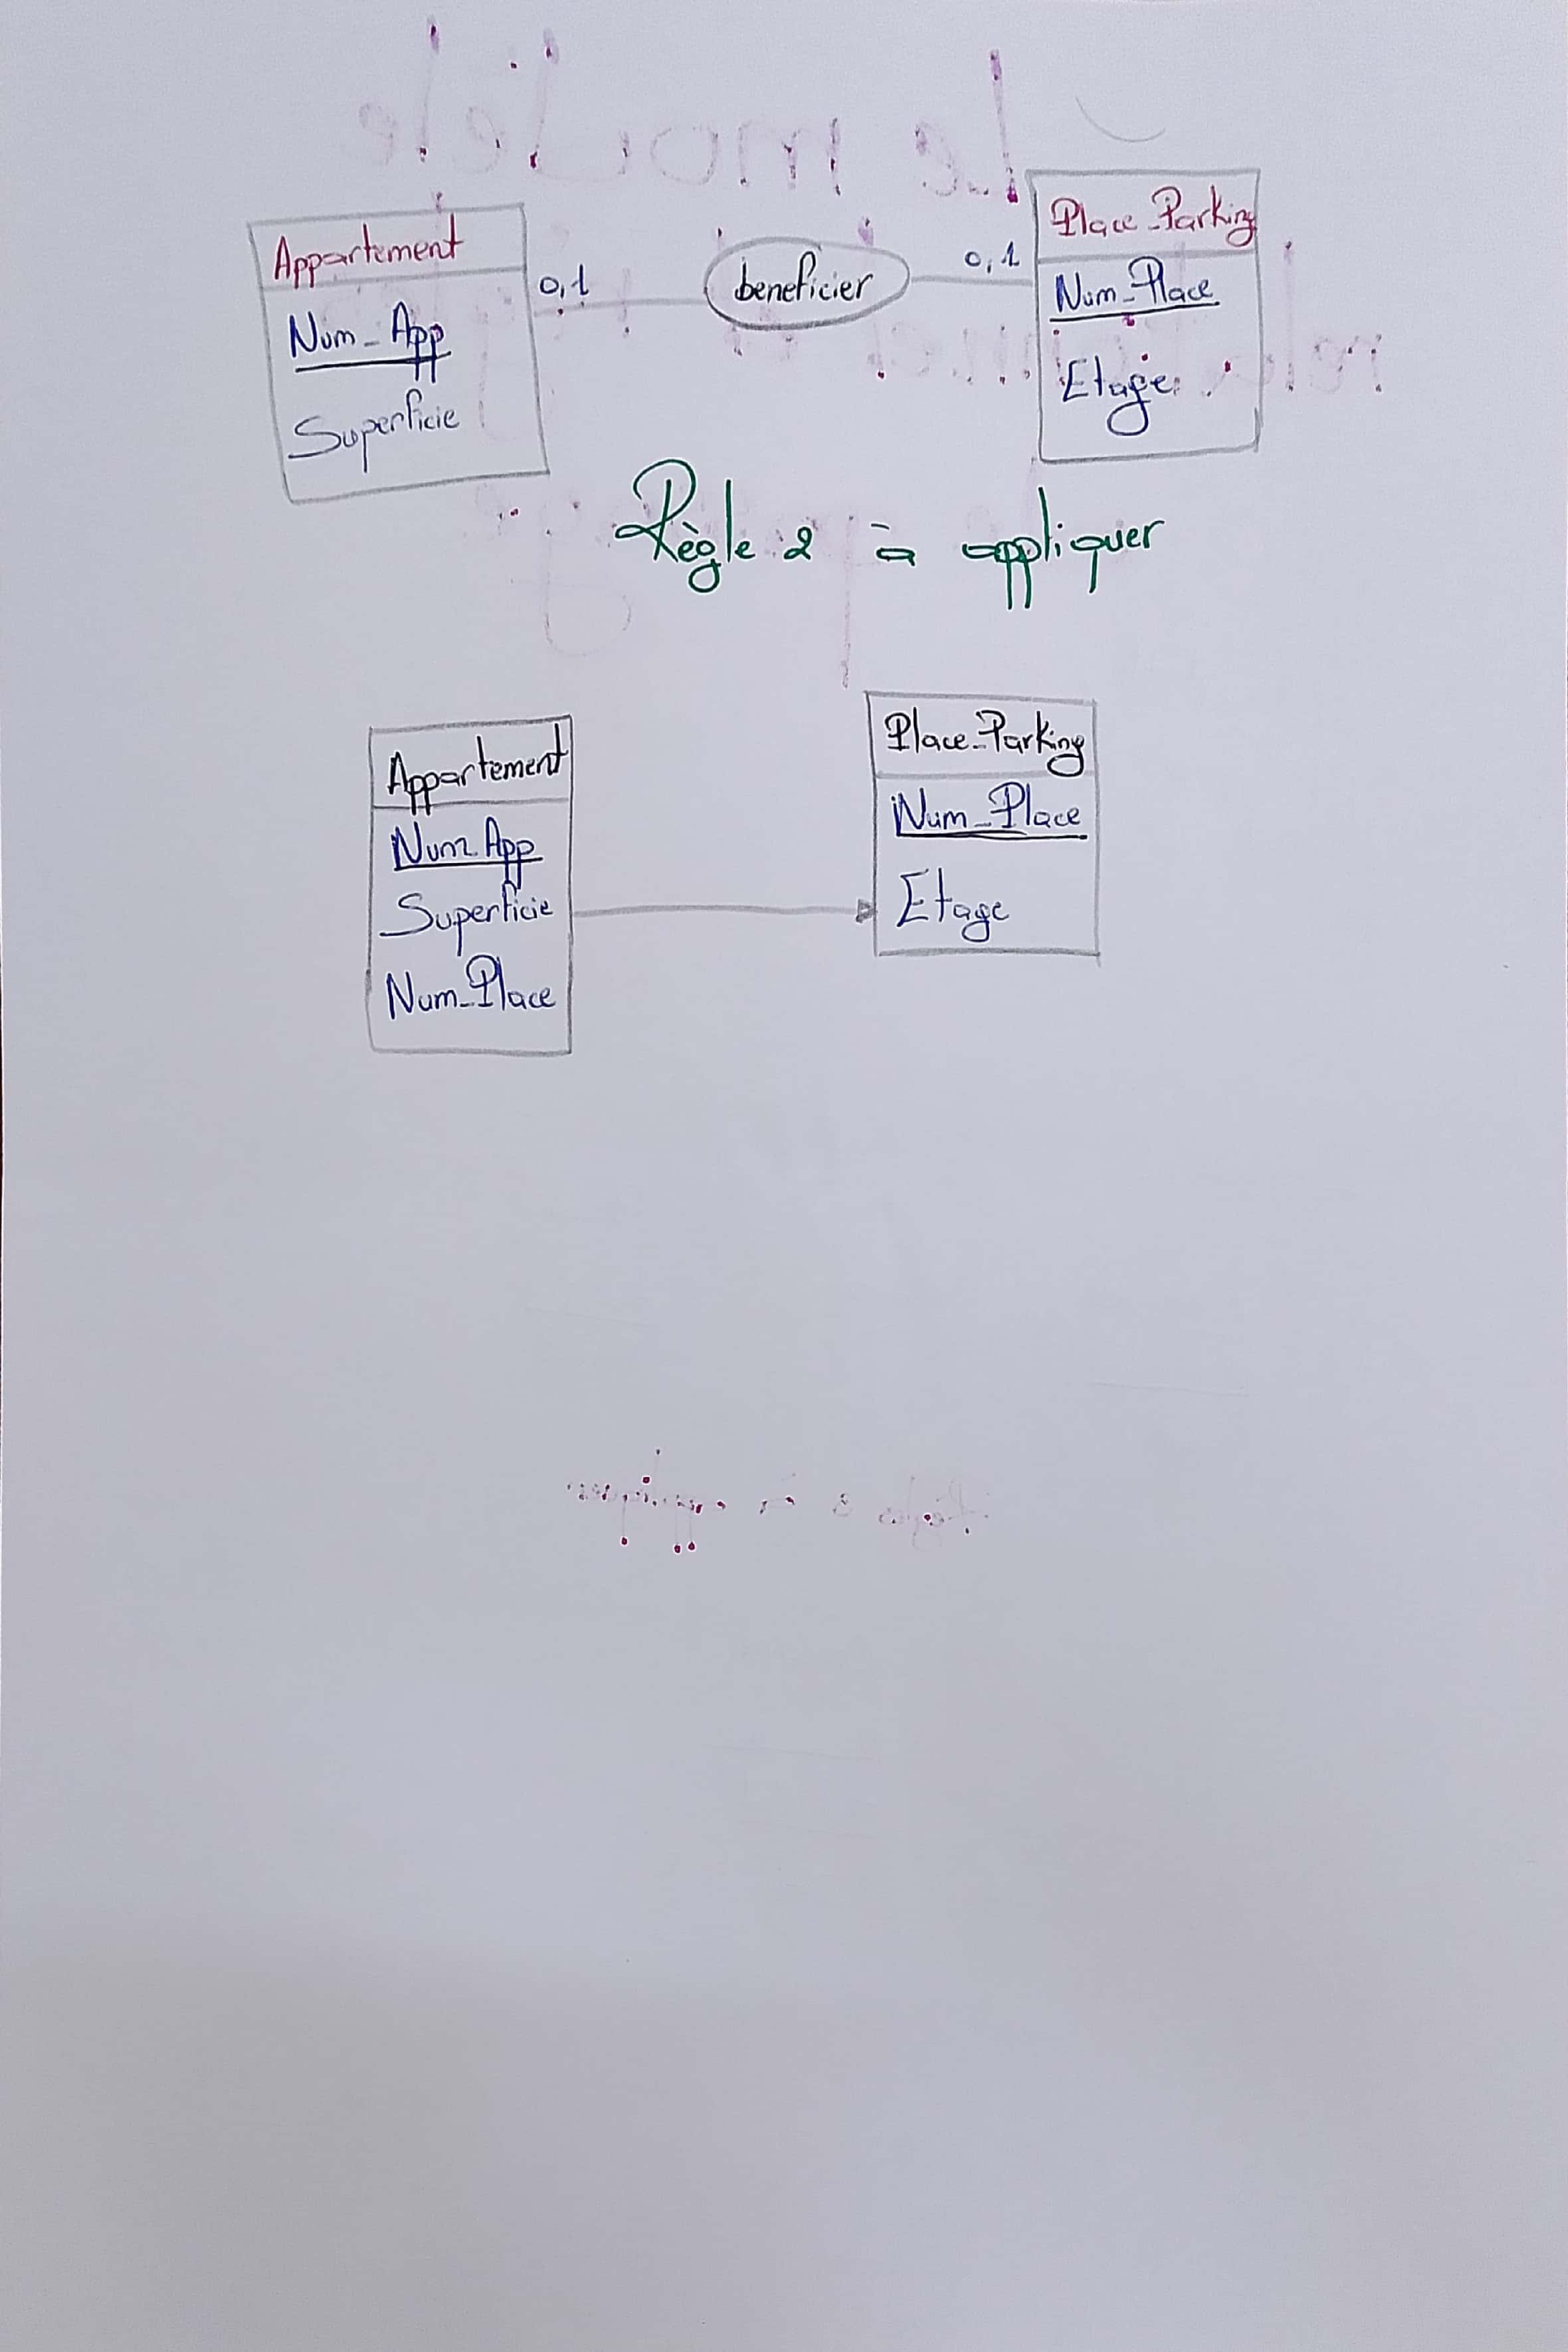 Appartement
Num_App
Superficie
0,1
beneficier
0,1
Place_Parking
Num_Place
Etage
Règle 2 à appliquer
Appartement
Num_App
Superficie
Num_Place
Place_Parking
Num_Place
Etage